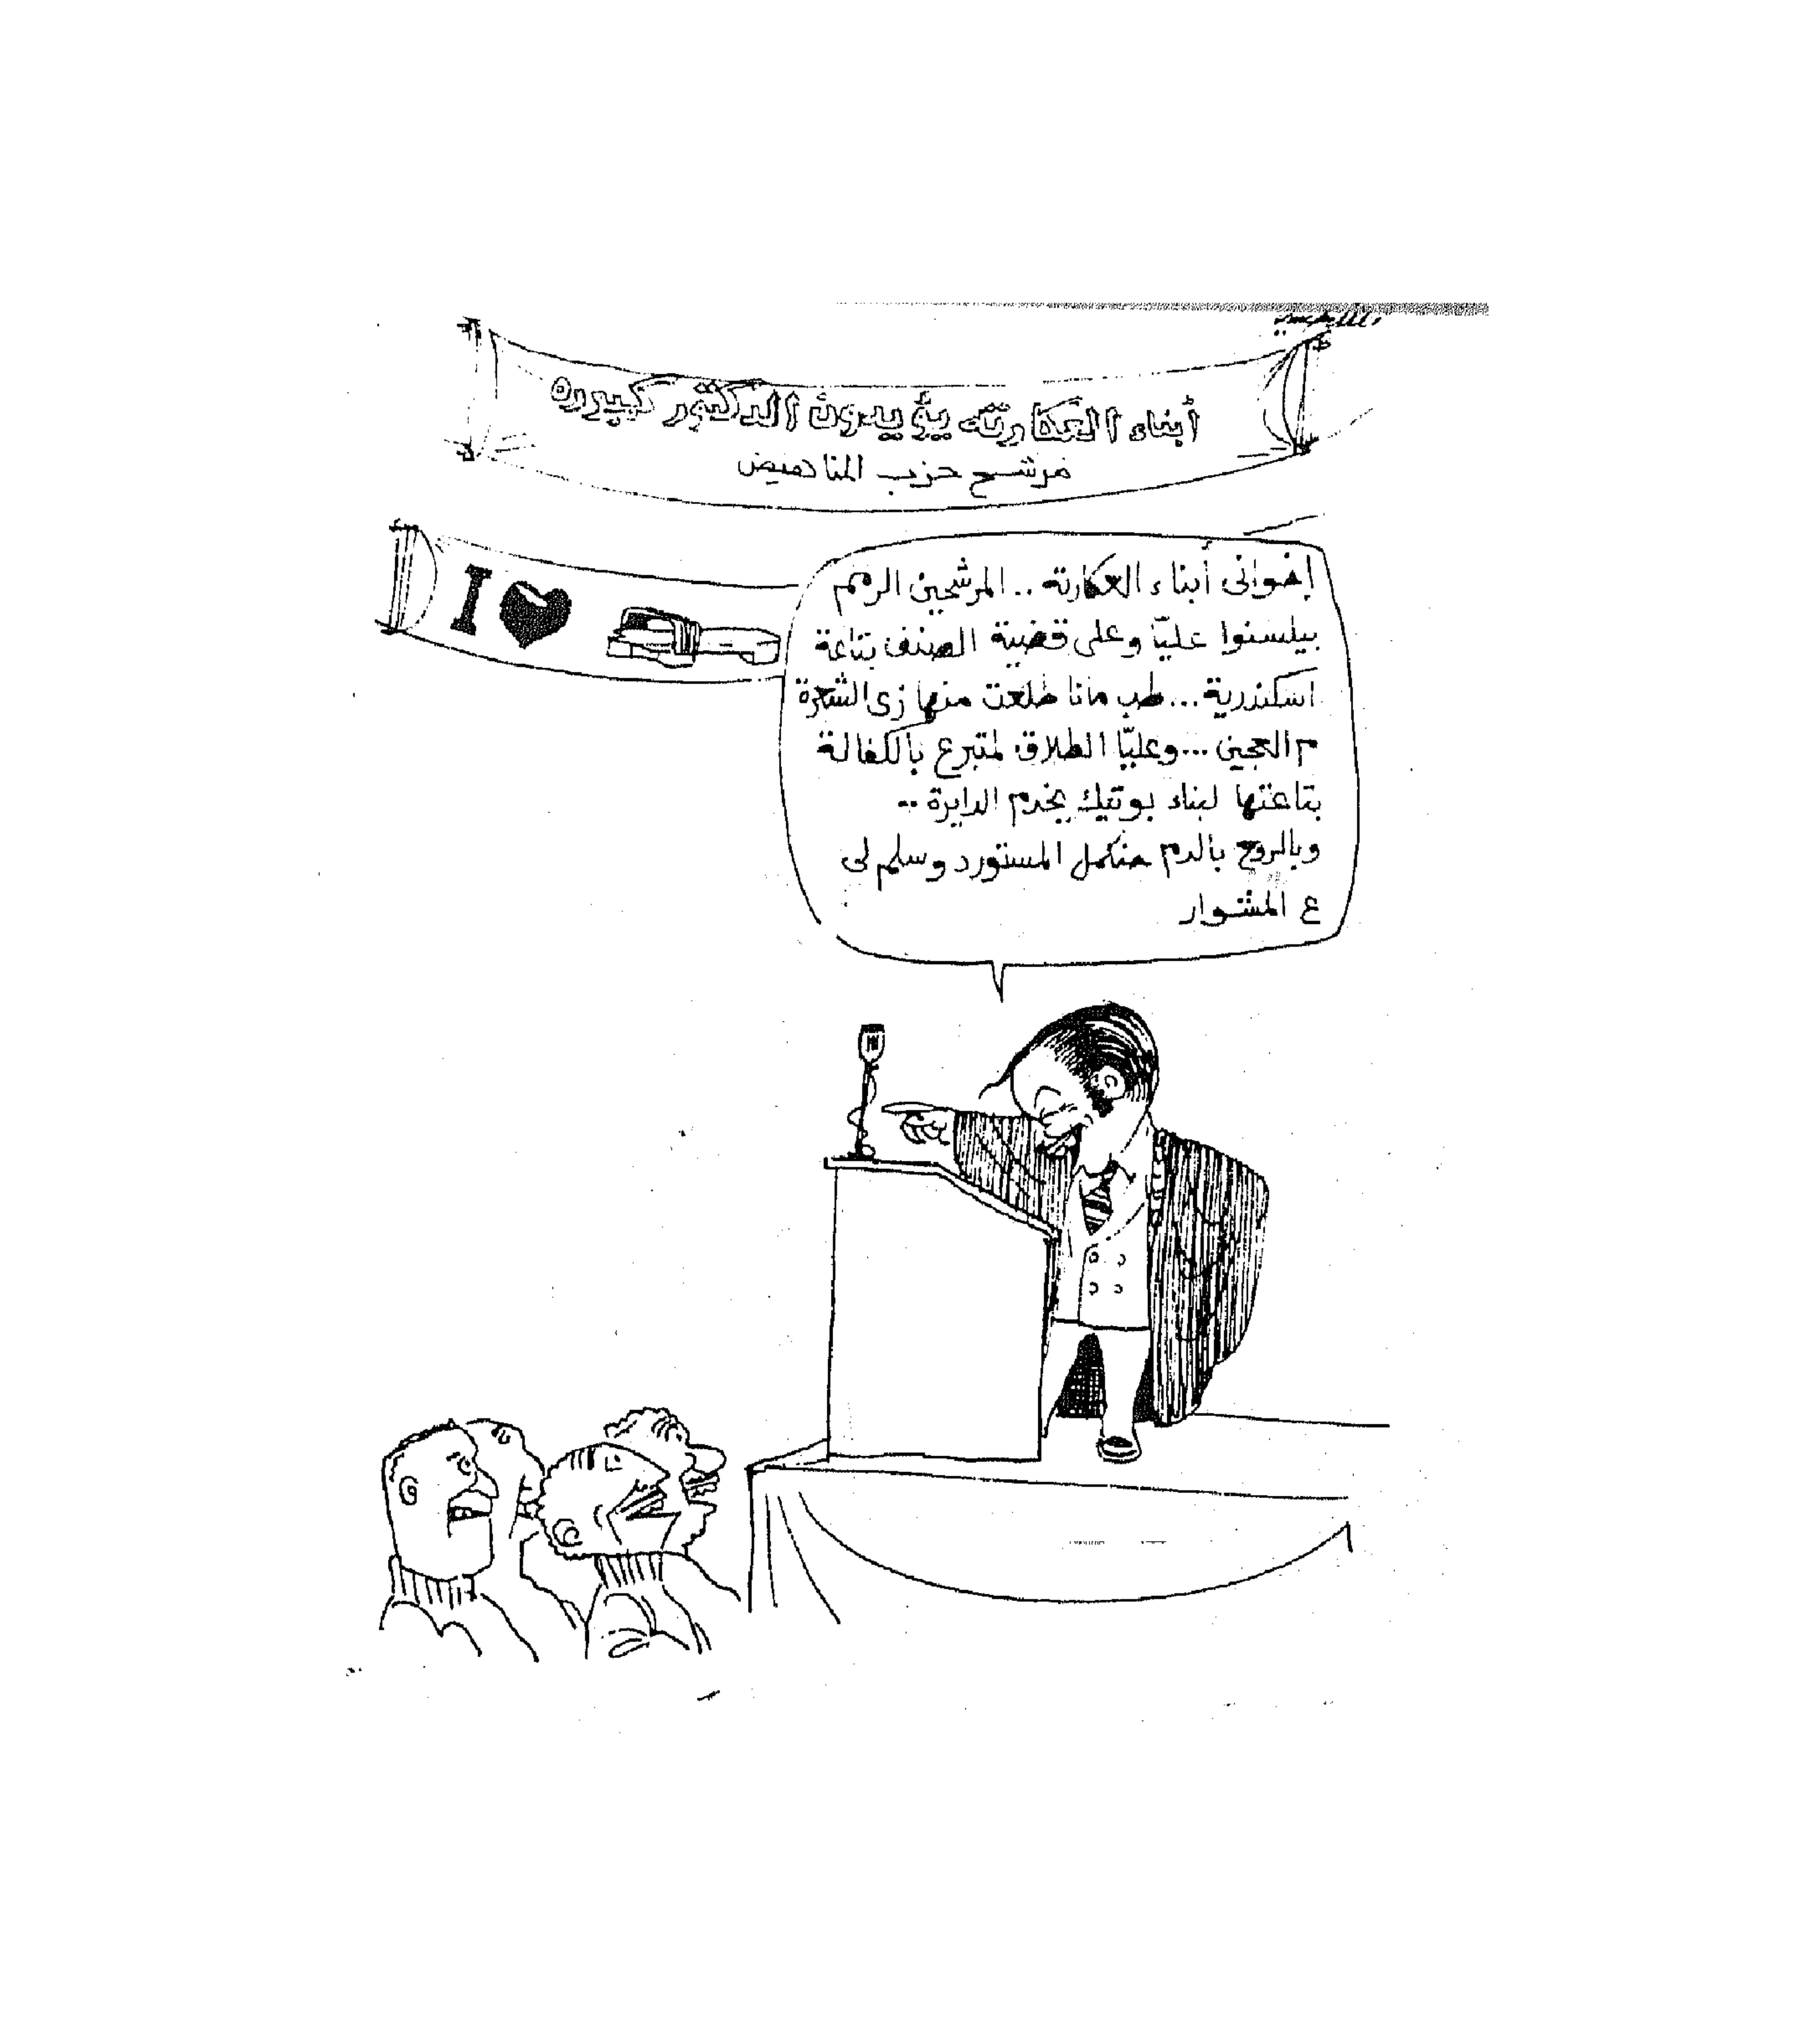 أبناء العكارته يؤيدون الدكتور كبوره
مرشح حزب المناهيض
I
إخوانى أبناء العكارته .. المرشحين الرمم
بيلسنوا عليّا وعلى قضية الصنف بتاعة
اسكندرية ... طب مانا طلعت منها زى الشعرة
م العجين ... وعليّا الطلاق لمتبرع بالكفالة
بتاعتها لبناء بوتيك يخدم الدايرة ..
وبالروح بالدم حنكمل المستورد وسلم لى
ع المشوار